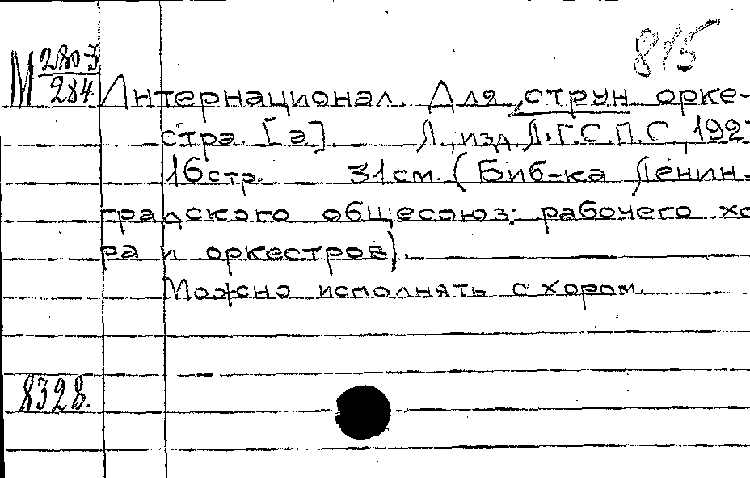 815
М 280-3
284
Интернационал. Для струн. орке-
стра. [а]. Л., изд. Л.Г.С.П.С., 192
16 стр. 31 см. (Биб-ка Ленин-
градского общесоюз. рабочего хо
ра и оркестров).
Можно исполнять с хором.
8328.